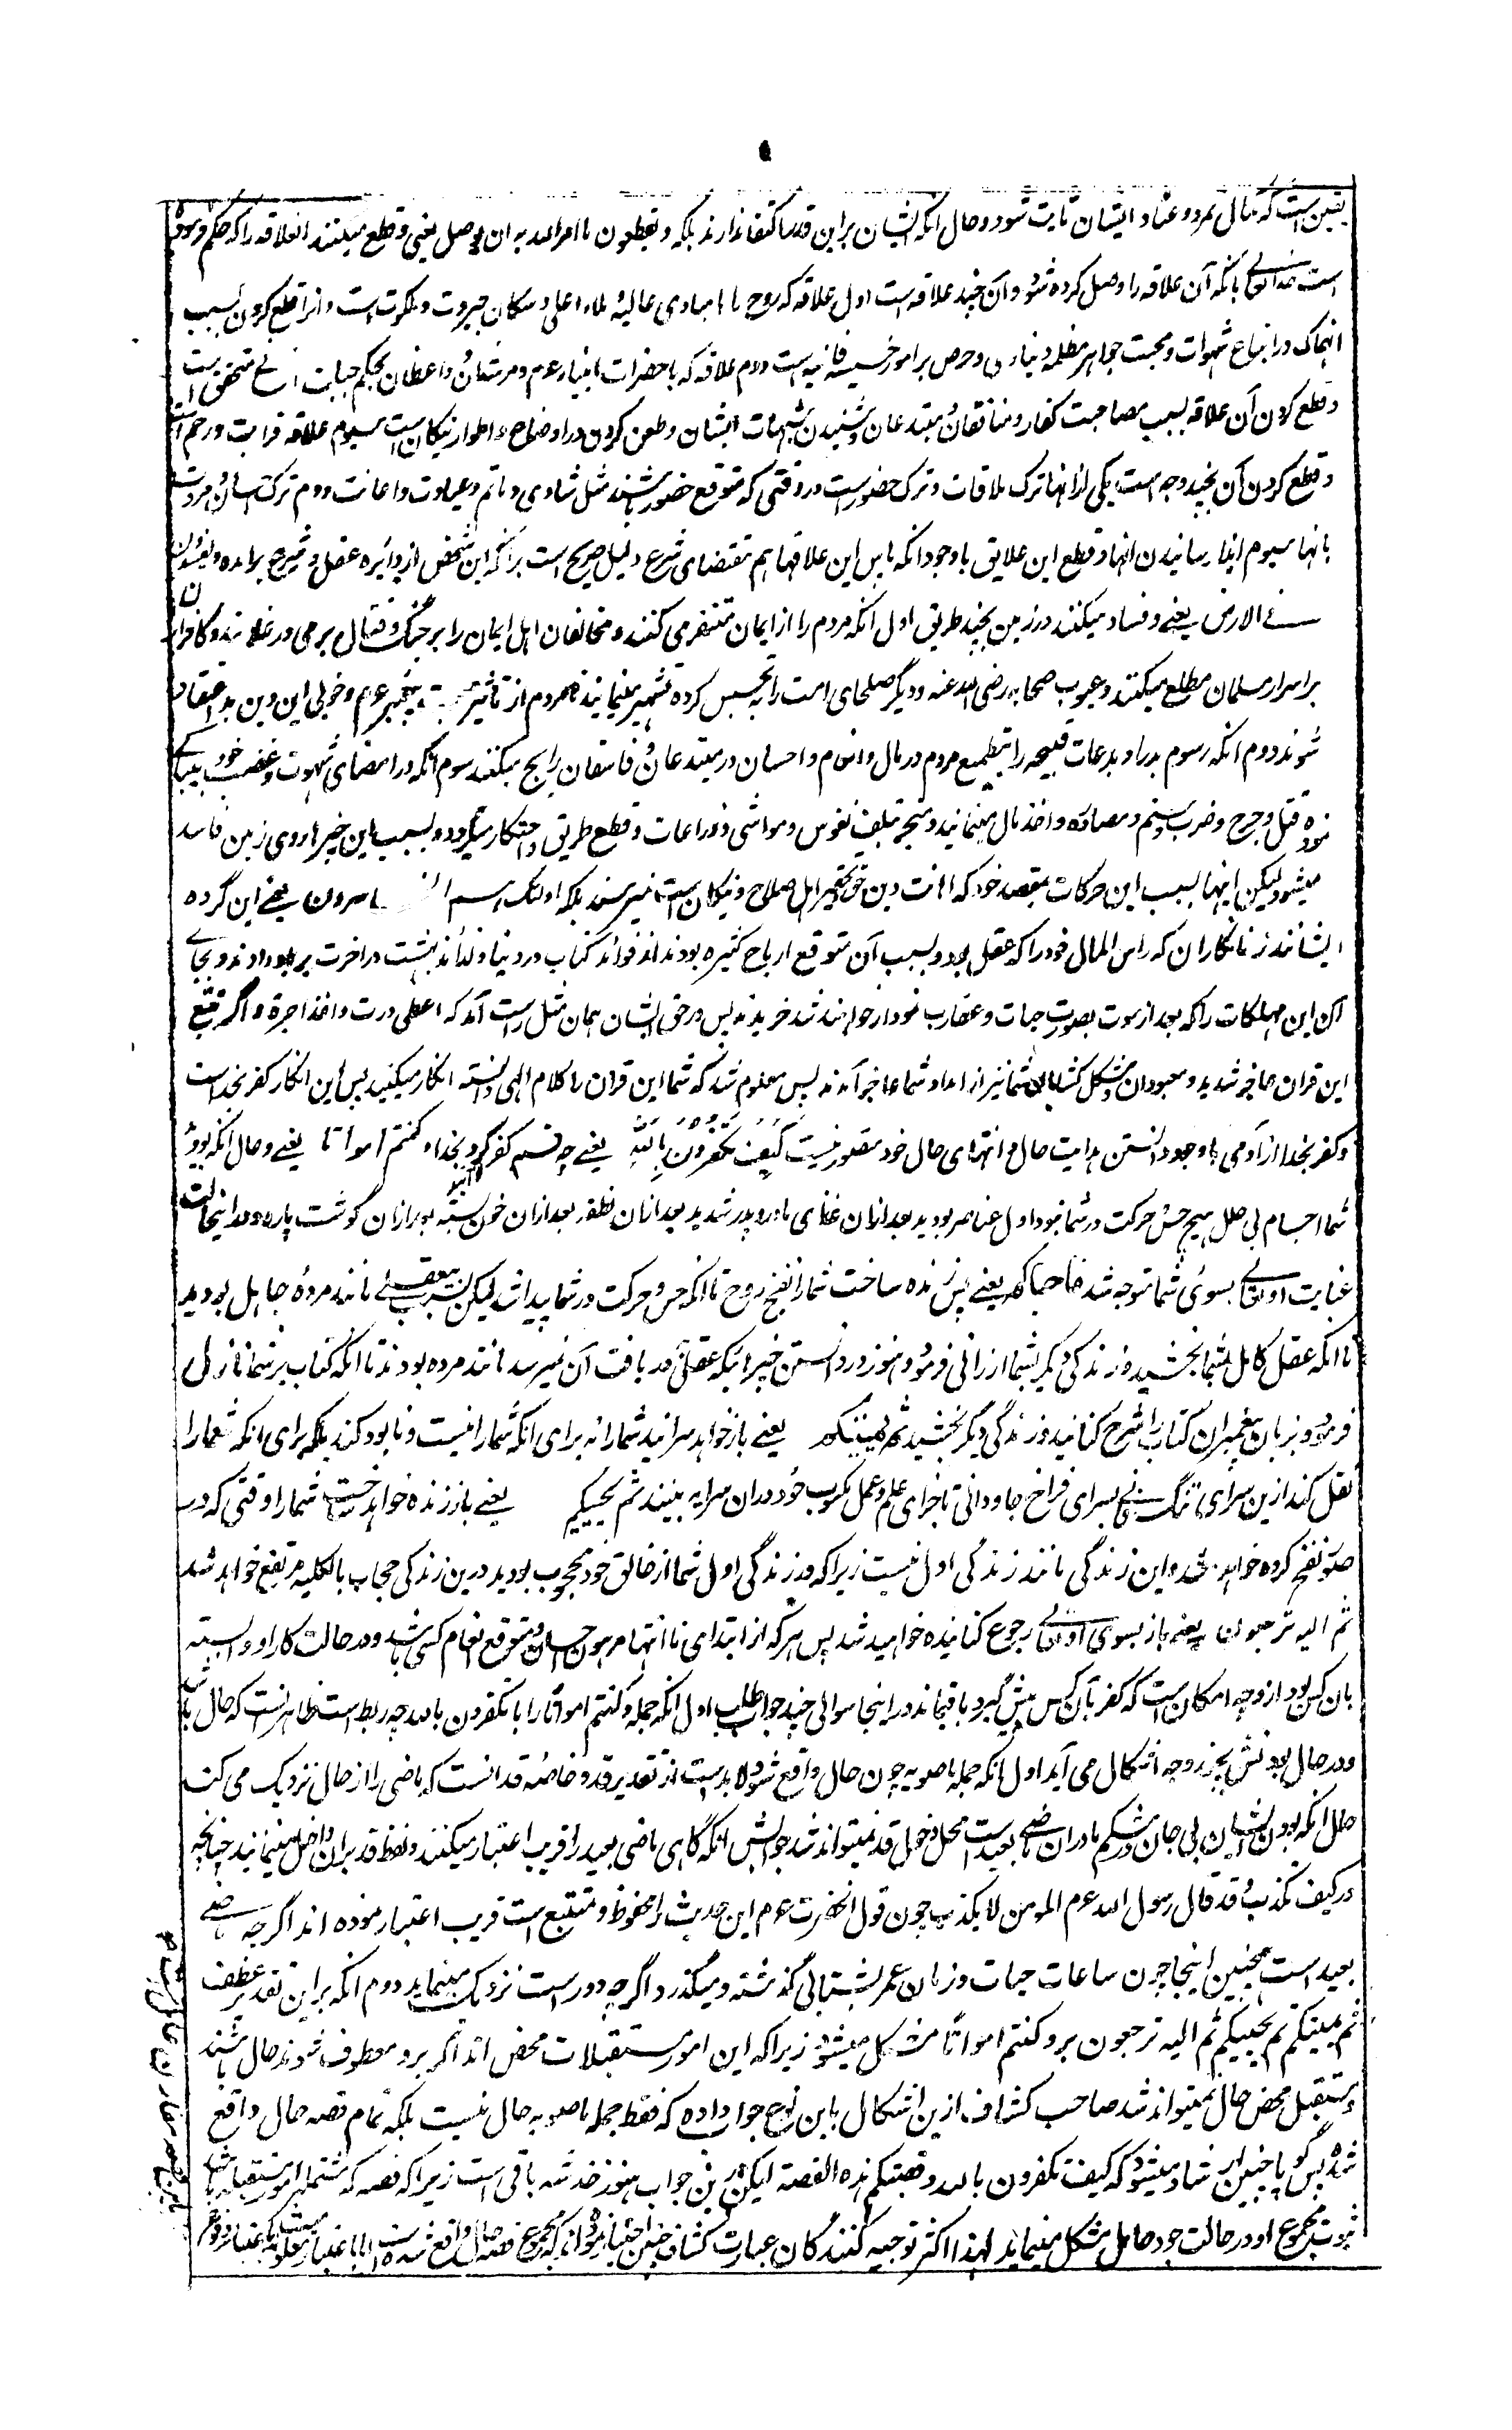 یقین است که کمال تمرد و عناد ایشان ثابت شود و حال آنکه ایشان برین قدر اکتفا ندارند بلکه و یقطعون ما امر الله به ان یوصل یعنی و قطع میکنند آنعلاقه را که حکم فرموده
است خدا تعالی بآنکه آن علاقه را وصل کرده شود و آن چند علاقه است اول علاقه که روح را با مبادی عالیه ملاء اعلی و سکان جبروت و ملکوت است و آنرا قطع کردن بسبب
انهماک در اتباع شهوات و محبت جواهر مظلمه دنیاوی و حرص بر امور خسیسه فانیه است دوم علاقه که با حضرات انبیاء عم و مرشدان و واعظان بحکم متحقق است
و قطع کردن آن علاقه بسبب مصاحبت کفار و منافقان و مبتدعان و شنیدن شبهات ایشان و طعن کردن در اوضاع و اطوار نیکان است سیوم علاقه قرابت و رحم است
و قطع کردن آن بچند وجه است یکی از انها ترک ملاقات و ترک حضور است در وقتی که متوقع حضور باشند مثل شادی و ماتم و عیادت و اعانت دوم ترک احسان و مروت
بانها سیوم ایذا رسانیدن انها و قطع این علایق با وجود آنکه پاس این علاقها هم مقتضای شرع دلیل صریح است بر آنکه این شخص از دائره عقل و شرع برآمده و یفسدون
فی الارض یعنی و فساد میکنند در زمین بچند طریق اول آنکه مردم را از ایمان متنفر می کنند و مخالفان اهل ایمان را بر جنگ و قتال بر می ورغلانند و کافران
بر اسرار مسلمان مطلع میکنند و عیوب صحابه رضی الله عنه و دیگر صلحای امت را تجسس کرده تشهیر مینمایند تا مردم از تاثیر پیغمبر عم و خوبی این دین بد اعتقاد
شوند دوم آنکه رسوم بد را و بدعات قبیحه را بتطمیع مردم در مال و انعام و احسان در مبتدعان و فاسقان رایج میکنند سوم آنکه در امضای شهوت و غضب خود بیباکی
نموده قتل و جرح و ضرب و شتم و مصادره و اخذ مال مینمایند و منجر بتلف نفوس و مواشی و زراعات و قطع طریق و احتکار میگردد و بسبب این چیزها روی زمین فاسد
میشود لیکن اینها بسبب این حرکات بمقصد خود که اهانت دین حق و تحقیر اهل صلاح و نیکان است نمیرسند بلکه اولئک هم الخاسرون یعنی این گروه
ایشانند زیانکاران که راس المال خود را که عقل بود و بسبب آن متوقع ارباح کثیره بودند از فوائد کتاب در دنیا و لذائذ بهشت در آخرت برباد دادند و بجای
آن این مهلکات را که بعد از موت بصورت حیات و عقارب نمودار خواهند شد خریدند پس در حق ایشان همان مثل راست آمد که اعطی درت و اخذ اجرة و اگر تتبع
این قران عاجز شدید و معبودان و مشکل کشایان شما نیز از امداد شما عاجز آمدند پس معلوم شد که شما این قران را کلام الهی دانسته انکار میکنید پس این انکار کفر بخداست
و کفر بخدا از آدمی با وجود دانستن بدایت حال و انتهای حال خود متصور نیست کَیْفَ تَکْفُرُوْنَ بِاللّٰهِ یعنی چه قسم کفر میکنید بخدا و کنتم امواتا یعنی و حال آنکه بودید
شما اجسام بی حل هیچ حس و حرکت در شما نبود اول عناصر بودید بعد ازان غذای مادر و پدر شدید بعد ازان نطفه بعد ازان خون بسته بعد ازان گوشت پاره و بعد اینحالت
عنایت او تعالی بسوی شما متوجه شد فاحیاکم یعنی پس زنده ساخت شما را بنفخ روح تا آنکه حس و حرکت در شما پیدا شد لیکن بسبب بیعقلی مانند مرده جاهل بودید
تا آنکه عقل کامل بشما بخشید و زندگی دیگر بشما ارزانی فرمود و هنوز در دانستن چیزهائیکه عقل بدریافت آن نمیرسد مانند مرده بودند تا آنکه کتاب بر شما نازل
فرمود و بزبان پیغمبران کتاب را شرح کنانید و زندگی دیگر بخشید ثم یمیتکم یعنی باز خواهد میرانید شما را نه برای آنکه شما را نیست و نابود کند بلکه برای آنکه شما را
نقل کند ازین سرای تنگ فانی بسرای فراخ جاودانی تا جزای علم و عمل مکسوب خود دران سرا به بینند ثم یحییکم یعنی باز زنده خواهد ساخت شما را وقتی که در
صور نفخ کرده خواهد شد و این زندگی مانند زندگی اول نیست زیرا که در زندگی اول شما از خالق خود محجوب بودید درین زندگی حجاب بالکلیه مرتفع خواهد شد
ثم الیه ترجعون یعنی باز بسوی او تعالی رجوع کنانیده خواهید شد پس هرکه از ابتدای تا انتها مرهون احسان و متوقع انعام کسی باشد و در حالت کار او وابسته
بآن کس بود از و چه امکان است که کفر بآن کس پیش گیرد باقیماند درینجا سوالی چند جواب طلب اول آنکه جمله و کنتم امواتا را با تکفرون بالله چه ربط است ظاهر آنست که حال باشد
و در حال بودنش بچند وجه اشکال می آید اول آنکه جمله ماضویه چون حال واقع شود لابد است از تقدیر قد و خاصه قد آنست که ماضی را از حال نزدیک می کند
حال آنکه بودن ایشان بی جان در شکم مادران ماضی بعید است محل دخول قد نمیتواند شد جوابش آنکه گاهی ماضی بعید را قریب اعتبار میکنند و لفظ قد بران داخل مینمایند چنانچه
در کیف تکذب و قد قال رسول الله عم المومن لا یکذب چون قول آنحضرت عم این حدیث را محفوظ و متتبع است قریب اعتبار نموده اند اگرچه ماضی
بعید است همچنین اینجا چون ساعات حیات و زمان عمر بشتابی گذشته و میگذرد اگرچه دور است نزدیک مینماید دوم آنکه برین تقدیر عطف
ثم یمیتکم ثم یحییکم ثم الیه ترجعون بر و کنتم امواتا مشکل میشود زیرا که این امور مستقبلات محض اند اگر برو معطوف شوند حال باشند
و مستقبل محض حال نمیتواند شد صاحب کشاف ازین اشکال باین نوع جواب داده که فقط جمله ماضویه حال نیست بلکه تمام قصه حال واقع
شده پس گویا چنین ارشاد میشود که کیف تکفرون بالله و قصتکم هذه القصة لیکن درین جواب هنوز خدشه باقی است زیرا که قصه که مشتمل بر امور مستقبله باشد
ثبوت مجموع او در حالت وجود عامل مشکل مینماید لهذا اکثر توجیه کنندگان عبارت کشاف چنین اختیار کرده اند که مجموع قصه حال واقع شده است اما باعتبار